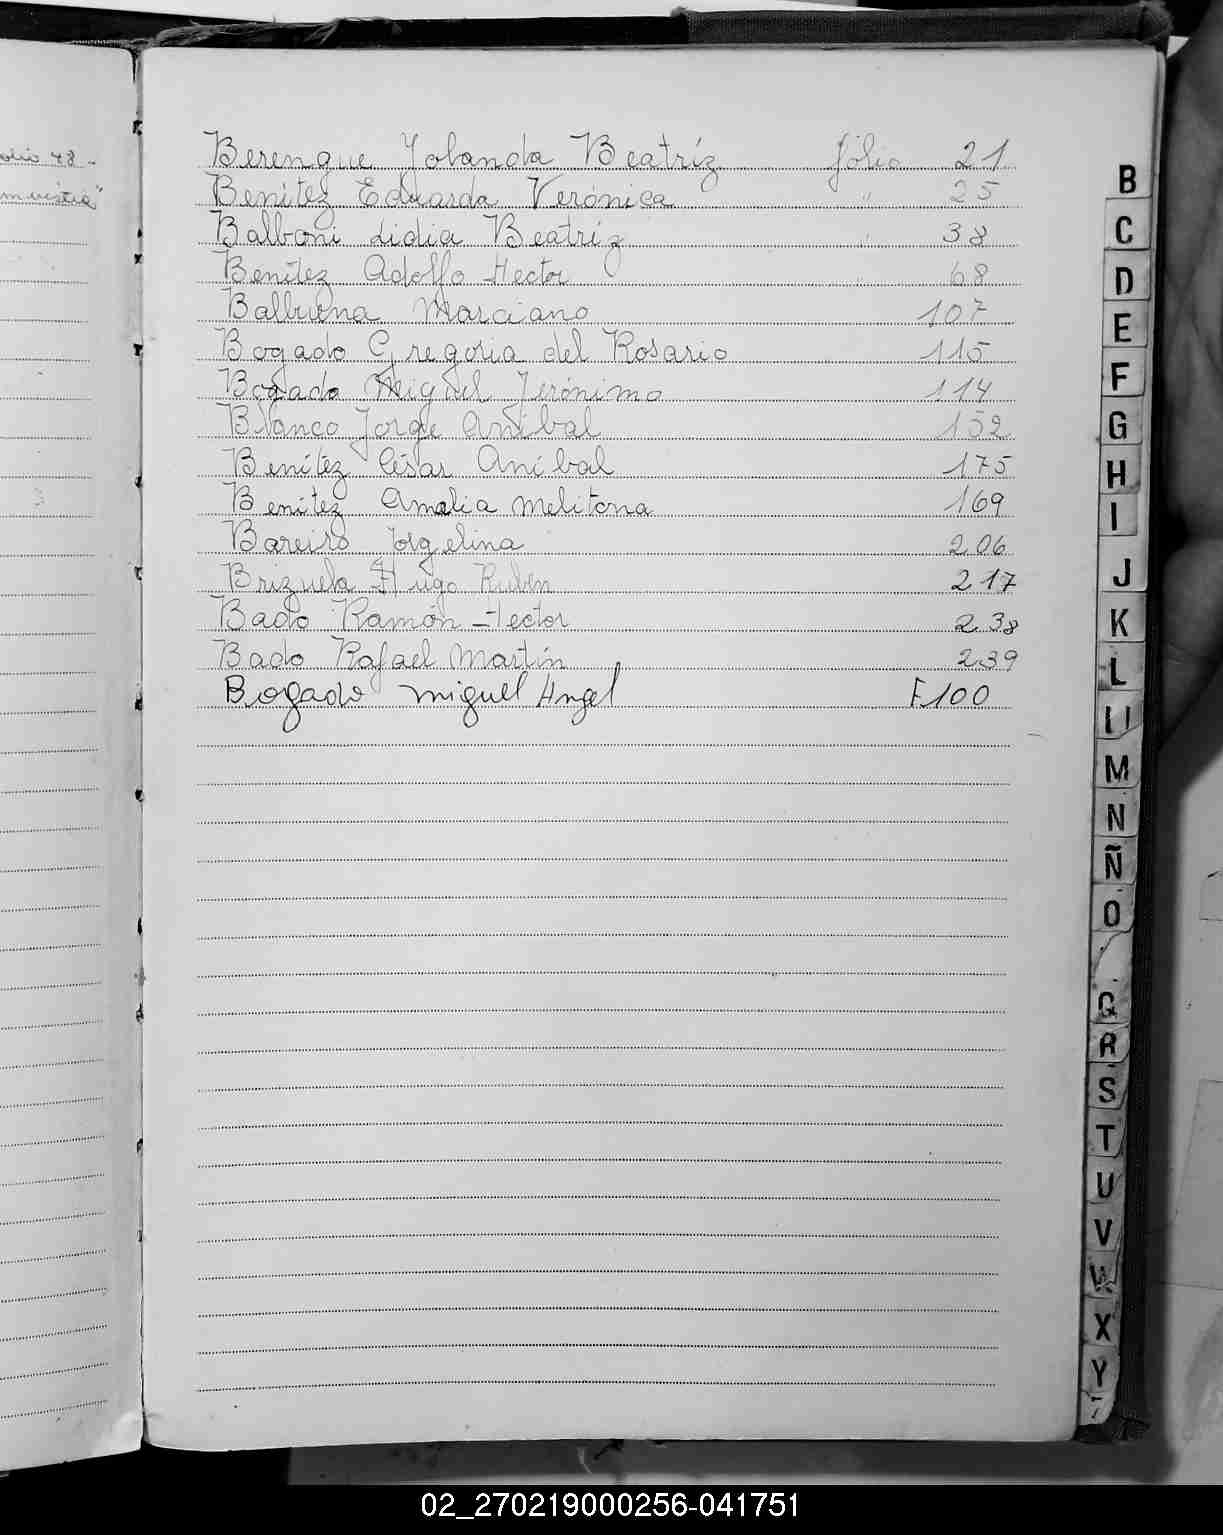 olio 48 -
Berengue Yolanda Beatríz fólio 21
Benítez Eduarda Verónica " 25
Balboni Lidia Beatríz " 38
Benítez Adolfo Hector " 68
Balbuena Marciano 107
Bogado Gregoria del Rosario 115
Bogado Miguel Jerónimo 114
Blanco Jorge Aníbal 152
Benítez César Aníbal 175
Benítez Amalia Melitona 169
Bareiro Jorgelina 206
Brizuela Hugo Rubén 217
Bado Ramón Hector 238
Bado Rafael Martín 239
Bogado Miguel Angel F.100
B
C
D
E
F
G
H
I
J
K
L
Ll
M
N
Ñ
O
Q
R
S
T
U
V
W
X
Y
02_270219000256-041751